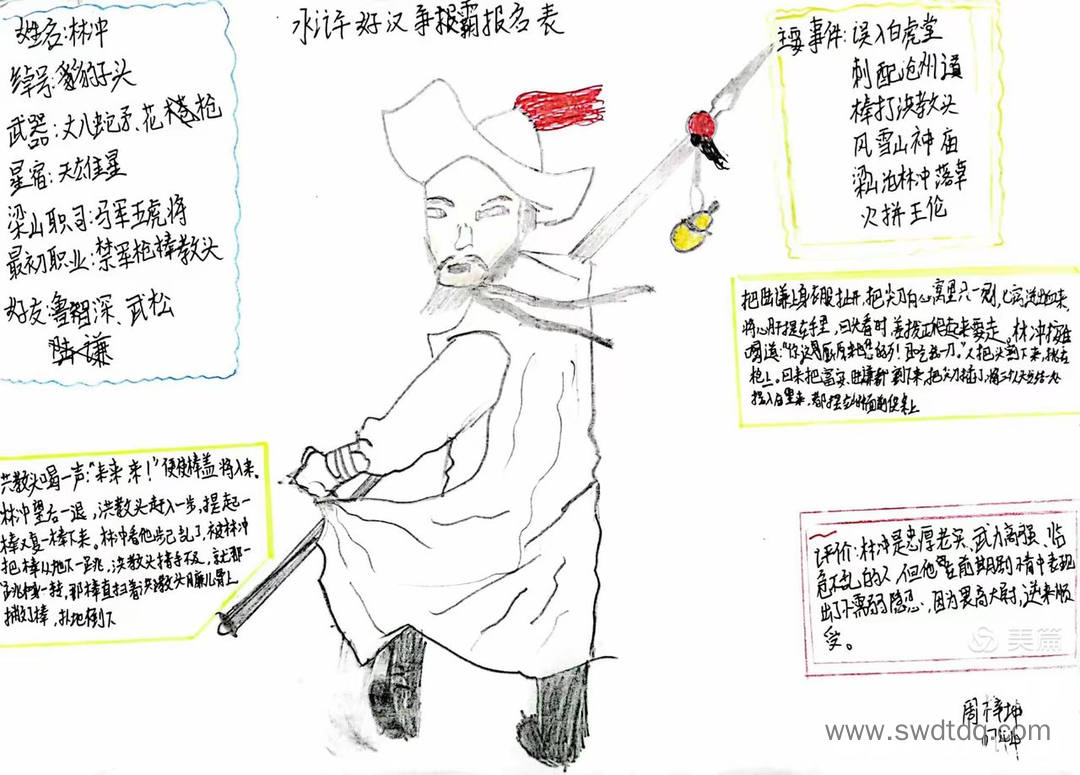 水浒好汉争报霸报名表
姓名:林冲
绰号:豹子头
武器:丈八蛇矛、花枪
星宿:天雄星
梁山职司:马军五虎将
最初职业:禁军枪棒教头
好友:鲁智深、武松
陆谦
主要事件:误入白虎堂
刺配沧州道
棒打洪教头
风雪山神庙
梁山泊林冲落草
火拼王伦
把陆谦上身衣服扯开,把尖刀向心窝里只一剜,七窍迸出血来,
将心肝提在手里,回头看时,差拨正爬起来要走。林冲按住
喝道:"你这厮原来也恁的歹!且吃我一刀。"又把头割下来,挑在
枪上。回来把富安、陆谦头割下来,把尖刀插了,将三个人头发结做一处
提入庙里来,都摆在山神面前供桌上
洪教头喝一声:"来来来!"便使棒盖将入来。
林冲望后一退,洪教头赶入一步,提起一
棒又复一棒下来。林冲看他步已乱了,被林冲
把棒从地下一跳,洪教头措手不及,就那一
跳,和身一转,那棒直扫着洪教头臁儿骨上,
撇了棒,扑地倒下
评价:林冲是忠厚老实、武力高强、临
危不乱的人,但他在前期剧情中表现
出了懦弱隐忍,因为畏高太尉,逆来顺
受。
美篇
周梓坤
www.swdtdq.com